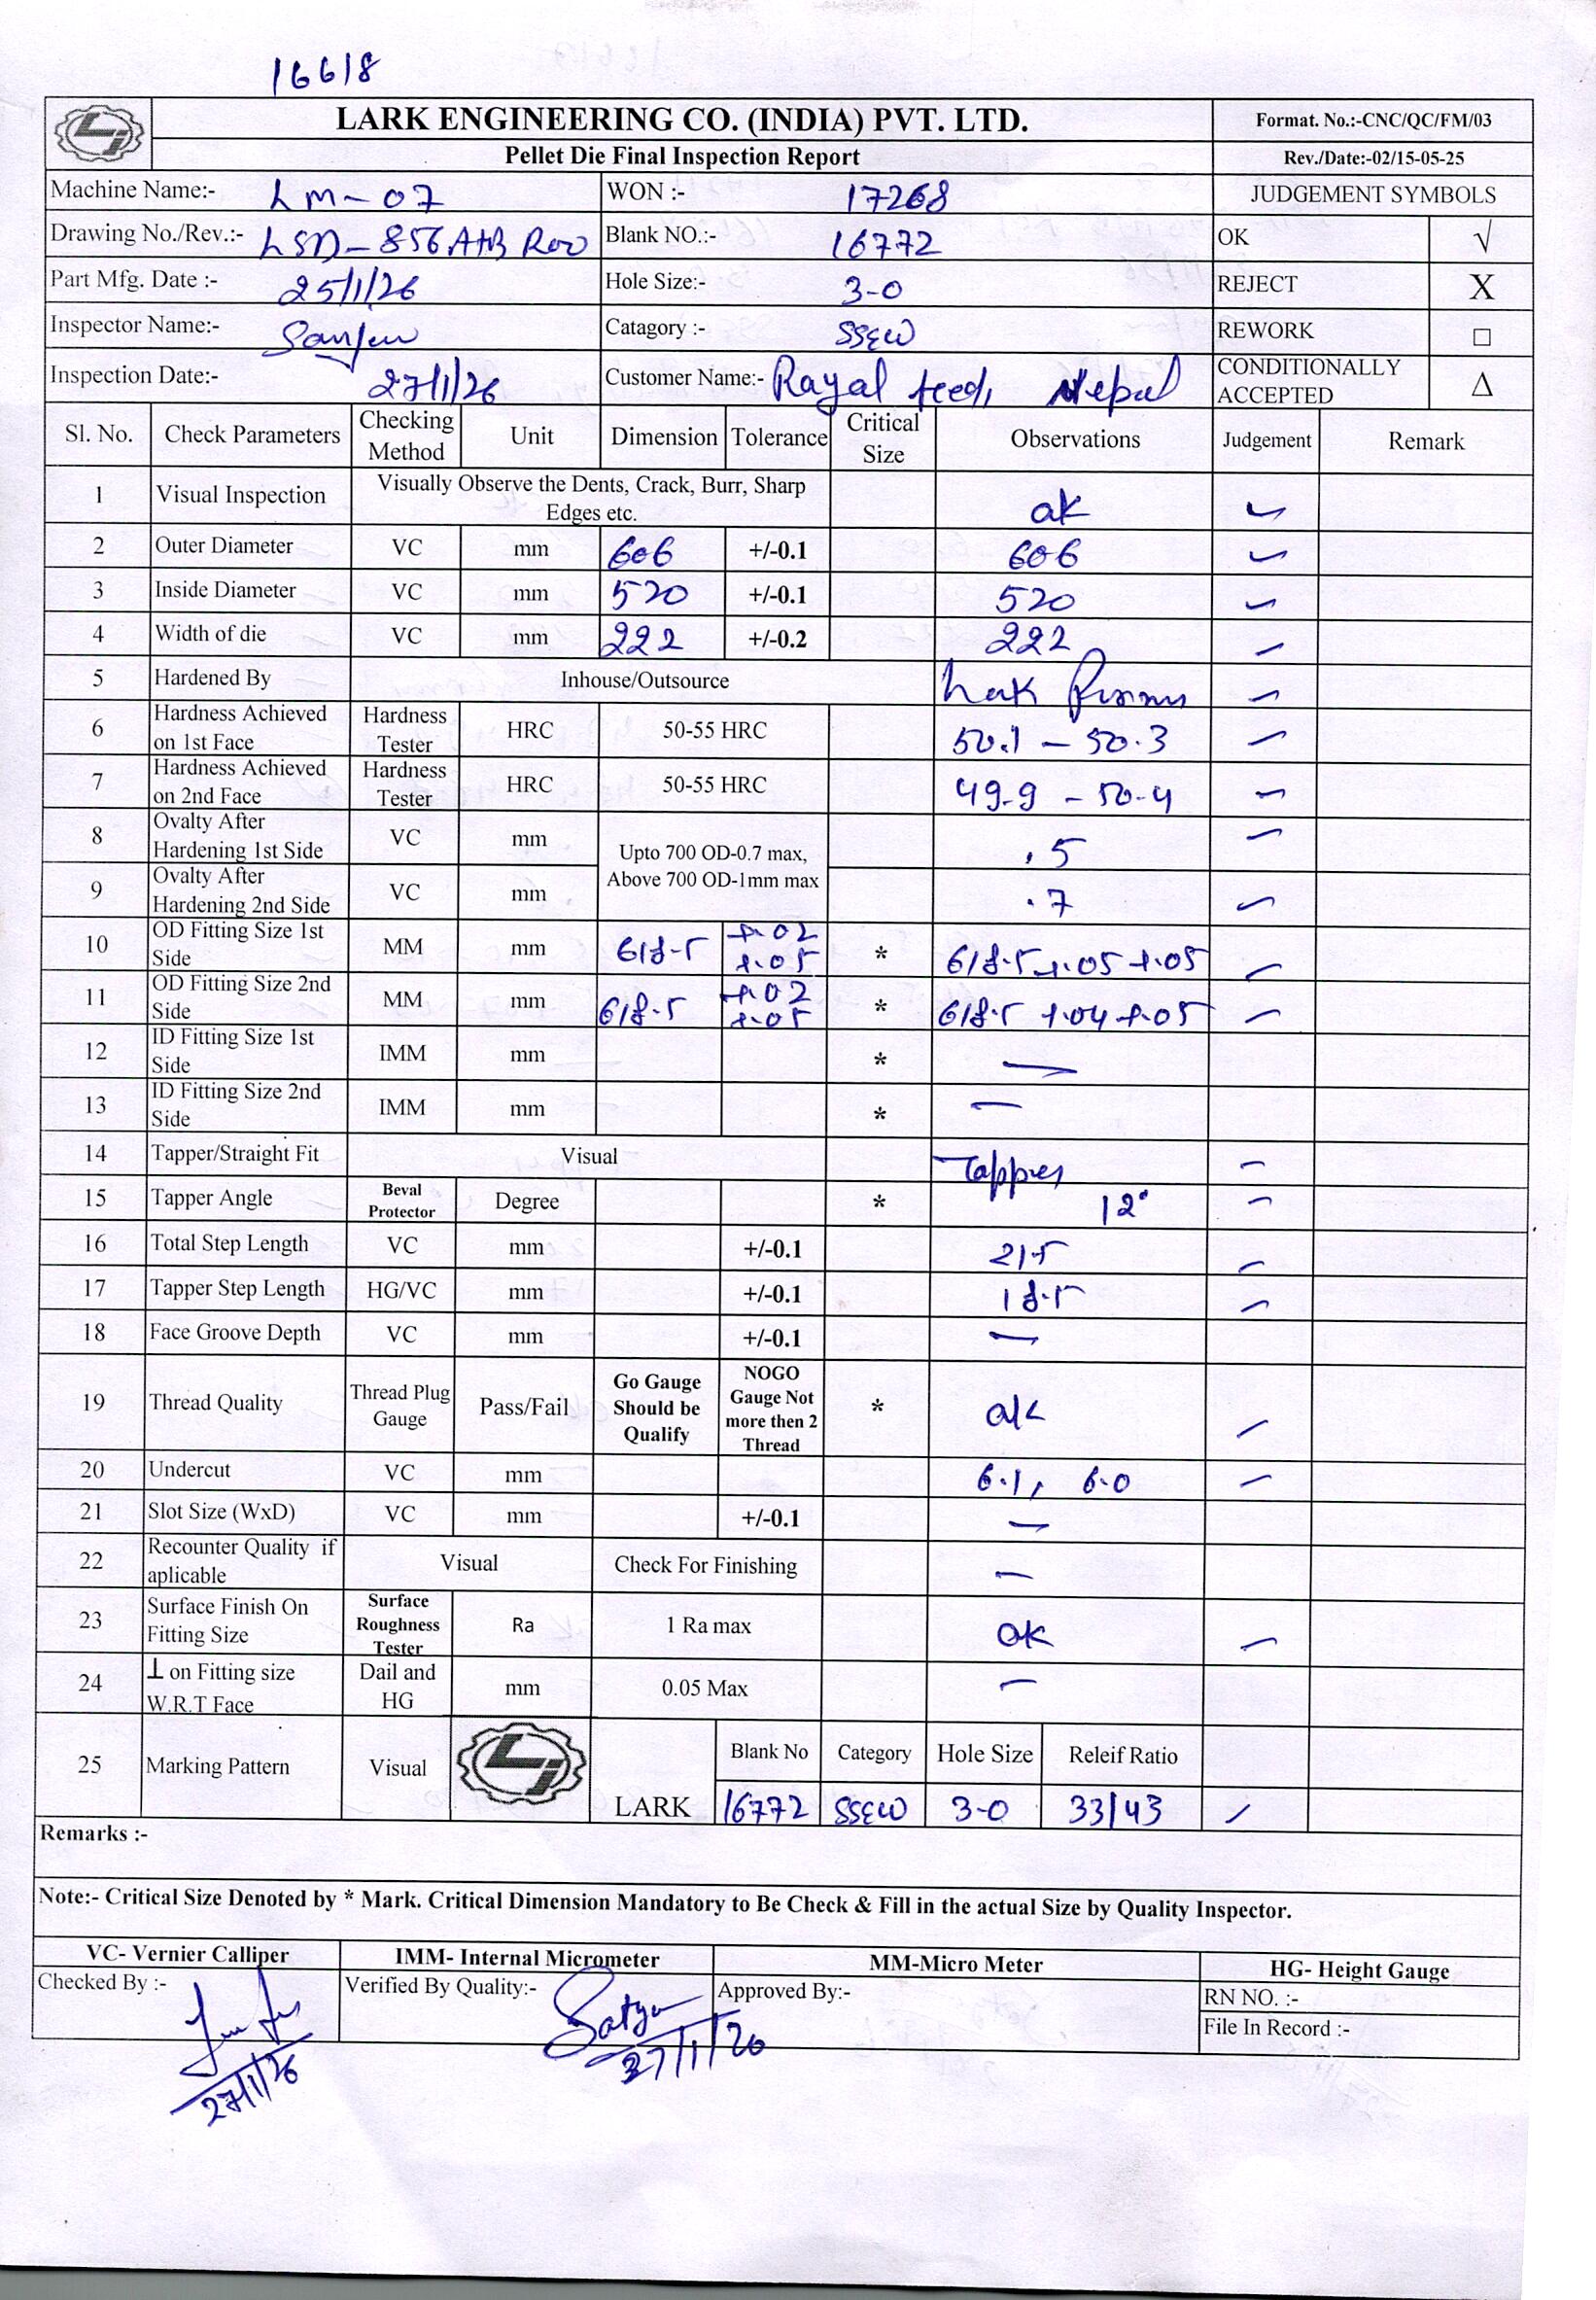 16618
LARK ENGINEERING CO. (INDIA) PVT. LTD.
Format. No.:-CNC/QC/FM/03
Pellet Die Final Inspection Report
Rev./Date:-02/15-05-25
Machine Name:- LM-07 WON :- 17268 JUDGEMENT SYMBOLS
Drawing No./Rev.:- LSD-856 A+B R00 Blank NO.:- 16772 OK √
Part Mfg. Date :- 25/1/26 Hole Size:- 3-0 REJECT X
Inspector Name:- Sanjeev Catagory :- SSEW REWORK □
Inspection Date:- 27/1/26 Customer Name:- Rayal feed, Nepal CONDITIONALLY ACCEPTED Δ
Sl. No. Check Parameters Checking Method Unit Dimension Tolerance Critical Size Observations Judgement Remark
1 Visual Inspection Visually Observe the Dents, Crack, Burr, Sharp Edges etc. ok ✓
2 Outer Diameter VC mm 606 +/-0.1 606 ✓
3 Inside Diameter VC mm 520 +/-0.1 520 ✓
4 Width of die VC mm 222 +/-0.2 222 ✓
5 Hardened By Inhouse/Outsource ✓
6 Hardness Achieved on 1st Face Hardness Tester HRC 50-55 HRC 50.1 - 50.3 ✓
7 Hardness Achieved on 2nd Face Hardness Tester HRC 50-55 HRC 49.9 - 50.4 ✓
8 Ovalty After Hardening 1st Side VC mm Upto 700 OD-0.7 max, Above 700 OD-1mm max .5 ✓
9 Ovalty After Hardening 2nd Side VC mm .7 ✓
10 OD Fitting Size 1st Side MM mm 618.5 +.02 +.05 * 618.5 +.05 +.05 ✓
11 OD Fitting Size 2nd Side MM mm 618.5 +.02 +.05 * 618.5 +.04 +.05 ✓
12 ID Fitting Size 1st Side IMM mm * —
13 ID Fitting Size 2nd Side IMM mm * —
14 Tapper/Straight Fit Visual Tapper ✓
15 Tapper Angle Beval Protector Degree * 12° ✓
16 Total Step Length VC mm +/-0.1 21.5 ✓
17 Tapper Step Length HG/VC mm +/-0.1 18.5 ✓
18 Face Groove Depth VC mm +/-0.1 —
19 Thread Quality Thread Plug Gauge Pass/Fail Go Gauge Should be Qualify NOGO Gauge Not more then 2 Thread * ok ✓
20 Undercut VC mm 6.1, 6.0 ✓
21 Slot Size (WxD) VC mm +/-0.1 —
22 Recounter Quality if aplicable Visual Check For Finishing —
23 Surface Finish On Fitting Size Surface Roughness Tester Ra 1 Ra max ok ✓
24 ⊥ on Fitting size W.R.T Face Dail and HG mm 0.05 Max —
25 Marking Pattern Visual LARK Blank No Category Hole Size Releif Ratio
16772 SSEW 3-0 33/43 ✓
Remarks :-
Note:- Critical Size Denoted by * Mark. Critical Dimension Mandatory to Be Check & Fill in the actual Size by Quality Inspector.
VC- Vernier Calliper IMM- Internal Micrometer MM-Micro Meter HG- Height Gauge
Checked By :- Verified By Quality:- Satya Approved By:- RN NO. :-
File In Record :-
27/1/26 27/1/26